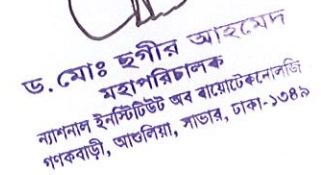 ড. মোঃ ছগীর আহমেদ
মহাপরিচালক
ন্যাশনাল ইনস্টিটিউট অব বায়োটেকনোলজি
গণকবাড়ী, আশুলিয়া, সাভার, ঢাকা-১৩৪৯